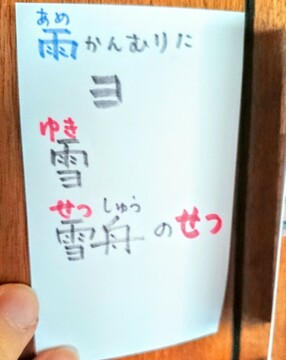 あめ
雨かんむりに
ヨ
ゆき
雪
せつ しゅう
雪舟のせつ